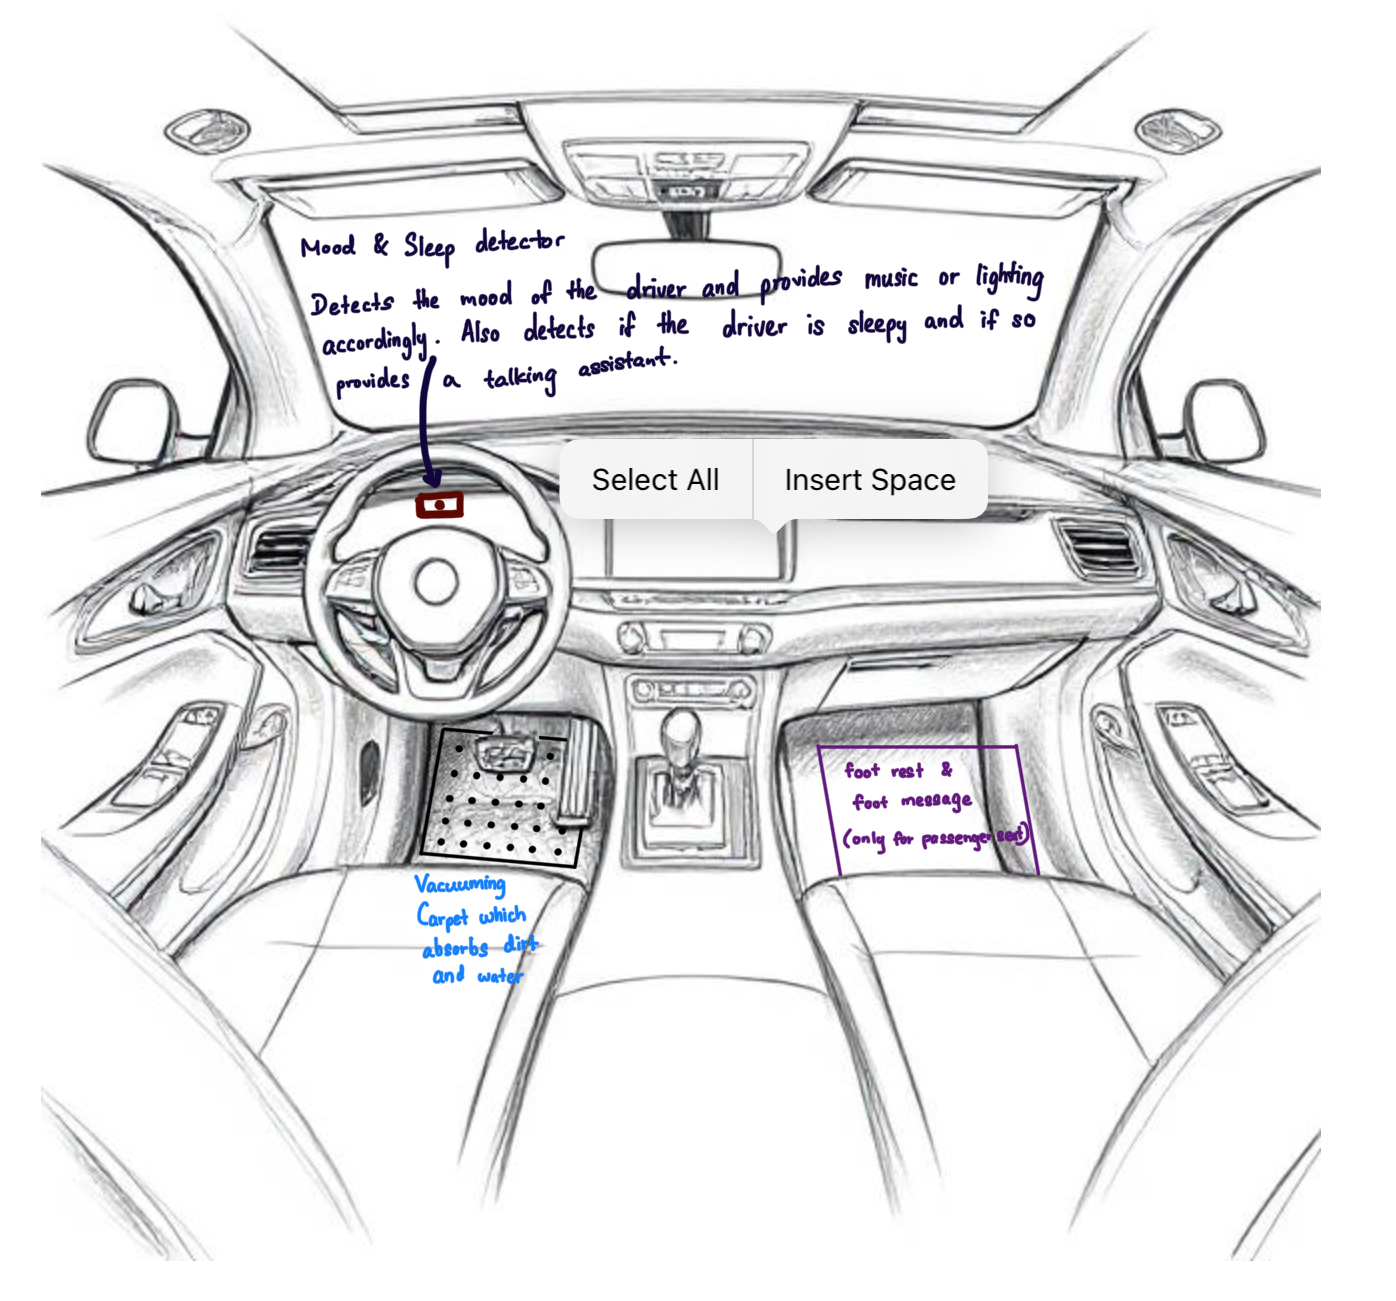 Mood & Sleep detector
Detects the mood of the driver and provides music or lighting
accordingly. Also detects if the driver is sleepy and if so
provides a talking assistant.
Select All
Insert Space
foot rest &
foot message
(only for passenger seat)
Vacuuming
Carpet which
absorbs dirt
and water